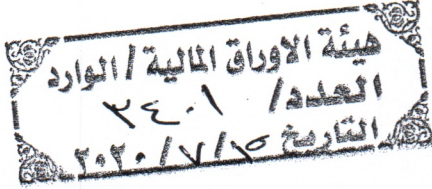 هيئة الاوراق المالية / الوارد
العدد / ٣٤٠١
التاريخ ١٥ / ٧ / ٢٠٢٠